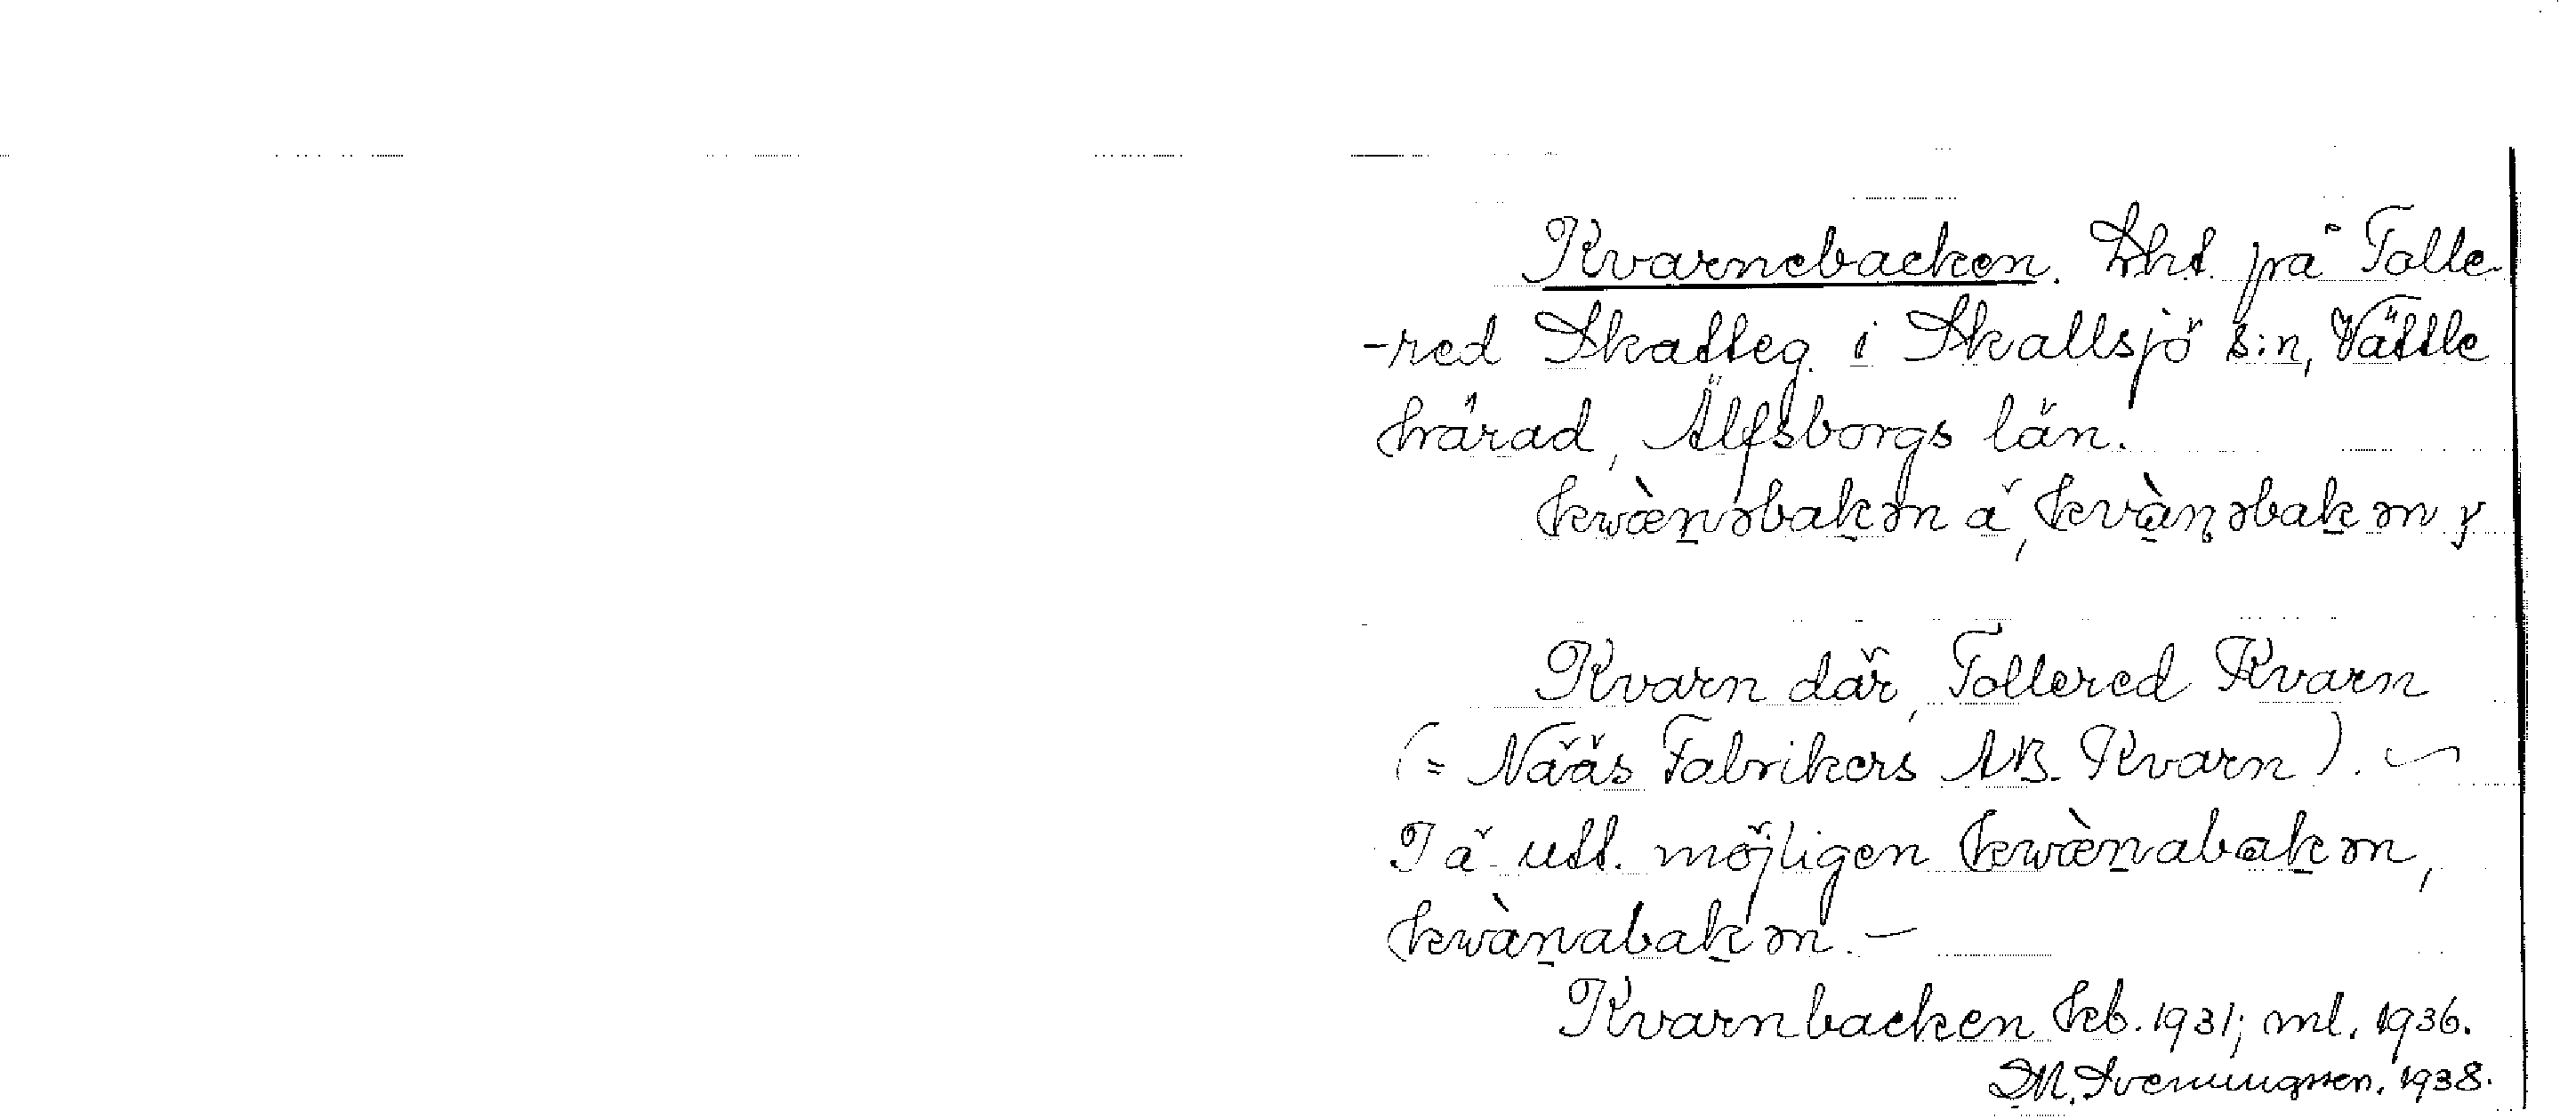 Kvarnebacken. Lht. på Tolle-
-red Skatteg. i Skallsjö s:n, Vättle
härad, Älfsborgs län.
kwæ̀n̠əbak̠ən ä, kvàn̠əbak̠ən y
Kvarn där, Tollered Kvarn
(= Nääs Fabrikers AB. Kvarn). ~
I ä utt. möjligen kwæ̀n̠abak̠ən,
kwàn̠abak̠ən. —
Kvarnbacken kb. 1931; ml. 1936.
M. Sveningsson. 1938.